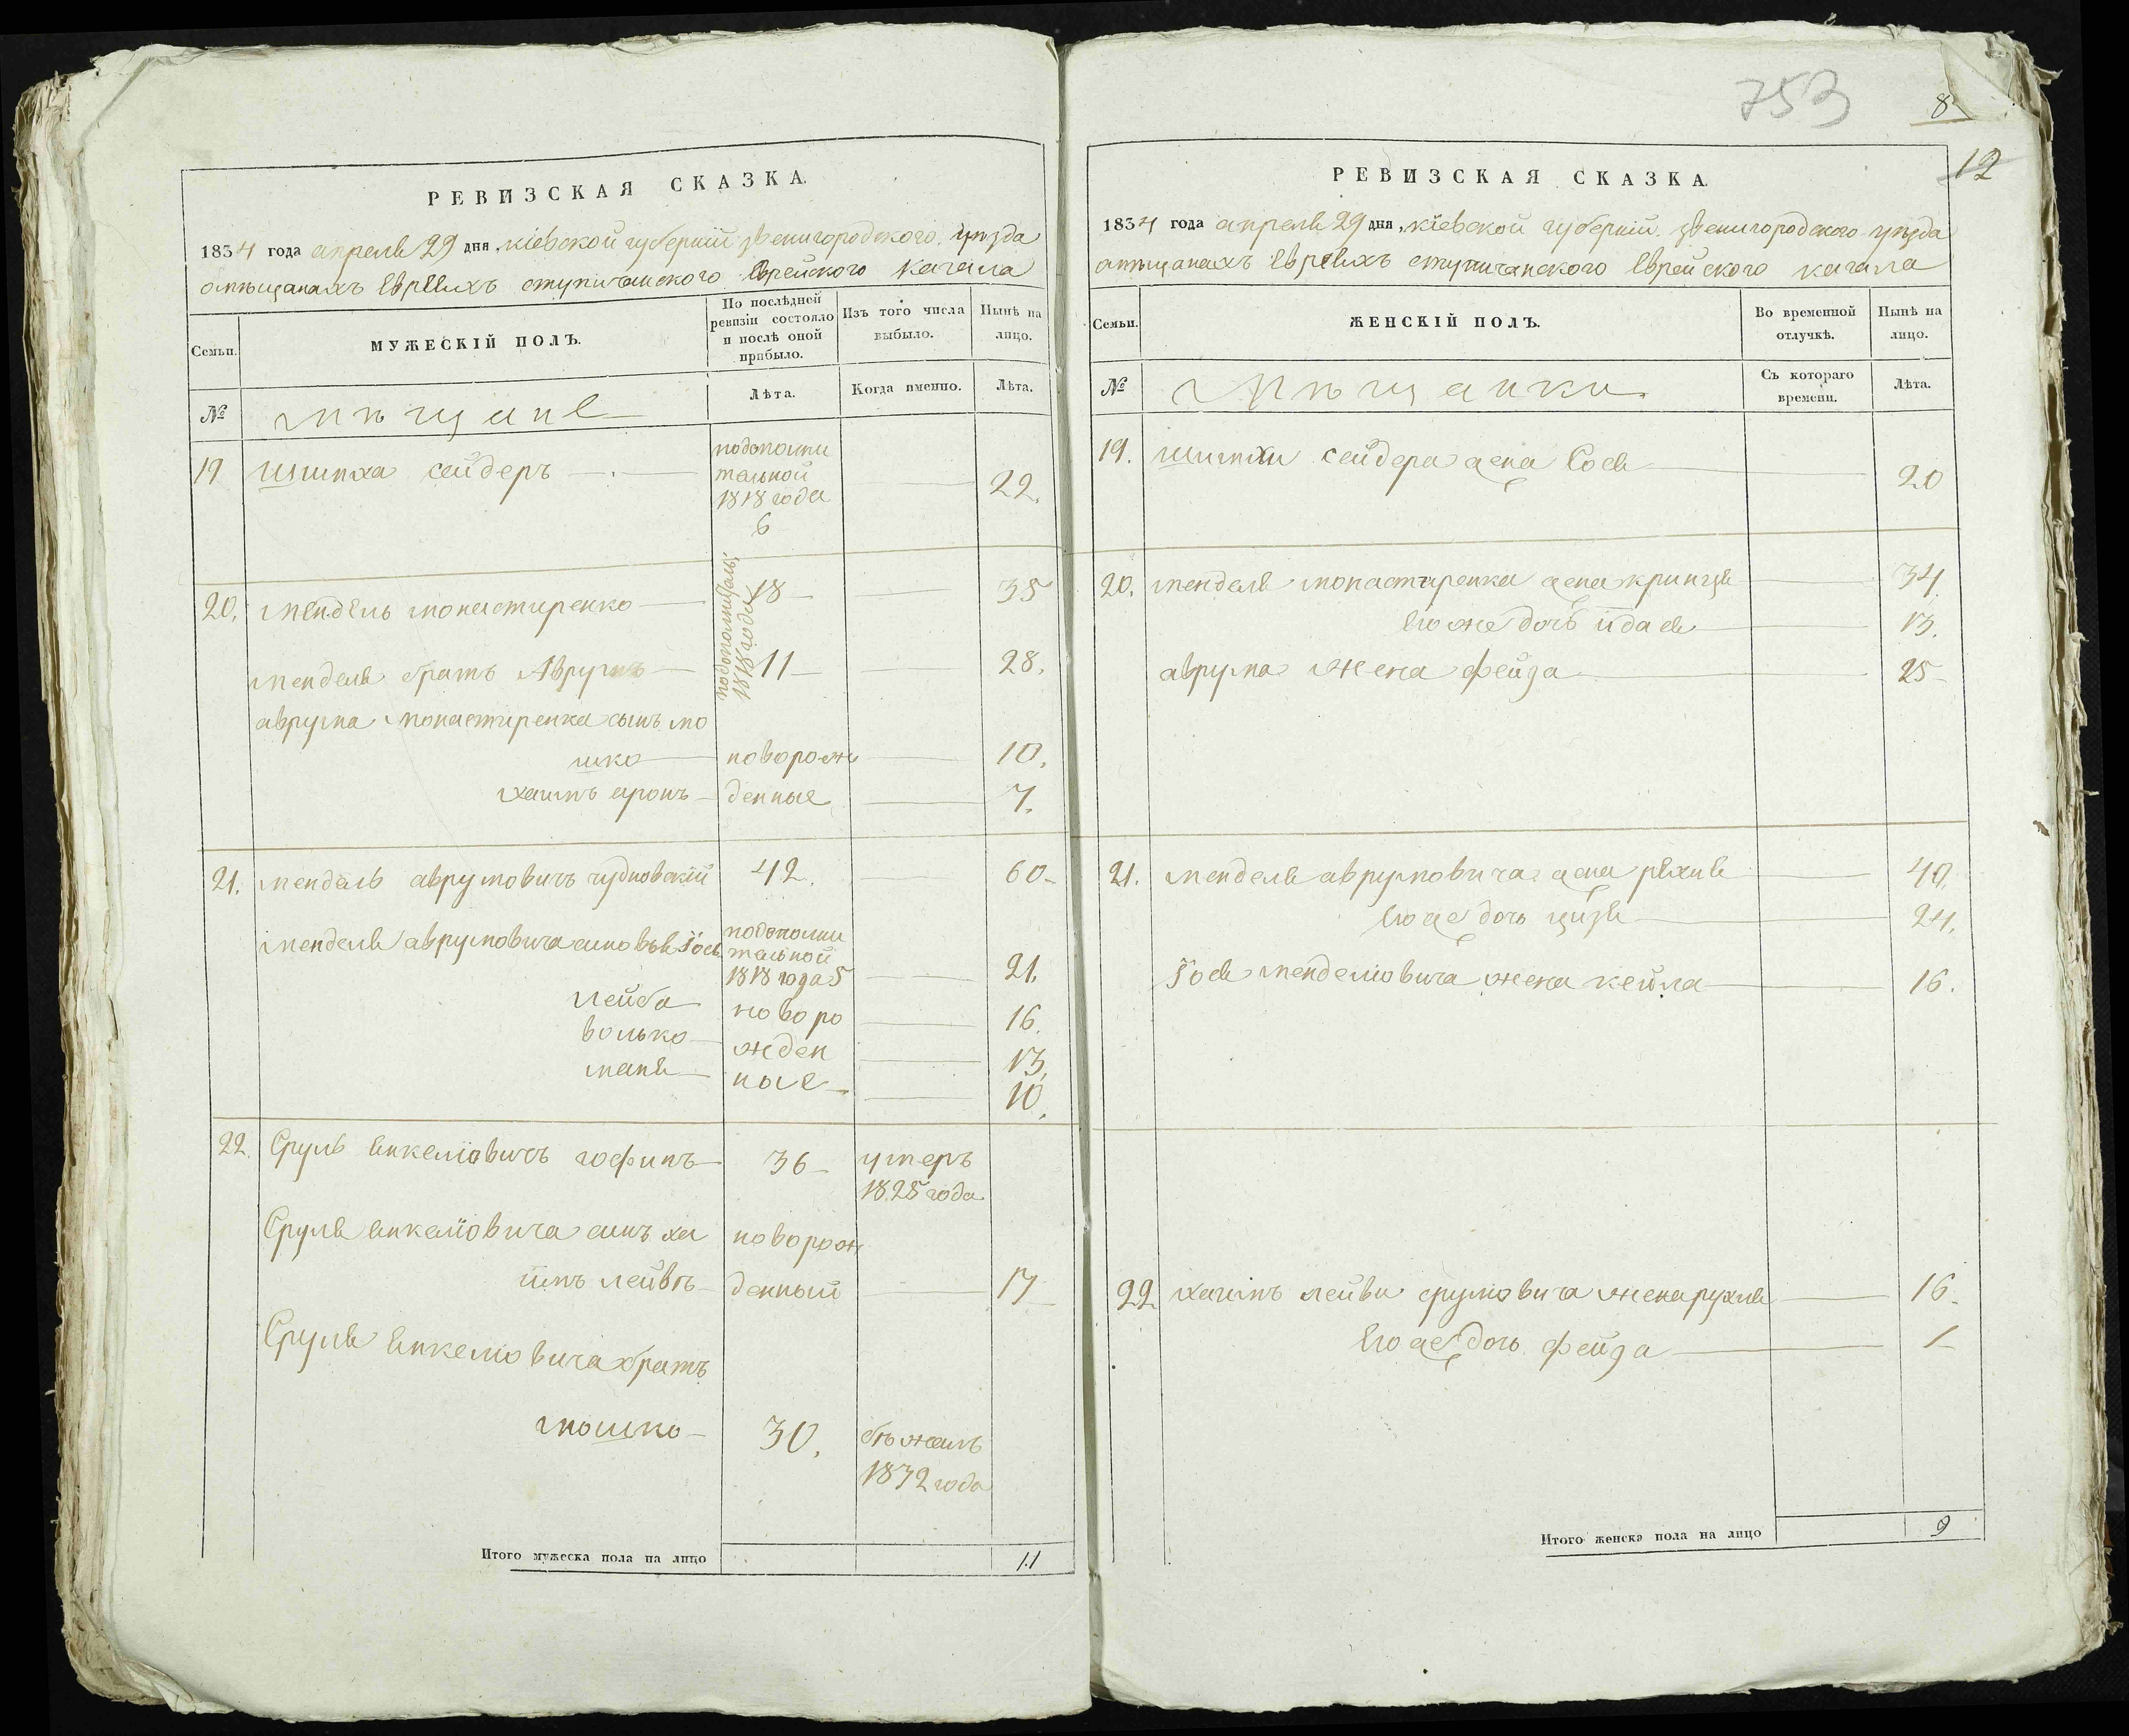 753
8
12
РЕВИЗСКАЯ СКАЗКА.
1834 года апреля 29 дня, кіевской губерніи звенигородского уѣзда
омѣщанахъ Евреяхъ ступичанского Еврейского кагала
Семьи.
МУЖЕСКІЙ ПОЛЪ.
По послѣдней ревизіи состояло и послѣ оной прибыло.
Изъ того числа выбыло.
Нынѣ на лицо.
№
мѣщане
Лѣта.
Когда именно.
Лѣта.
19 сейдеръ
подополни
тельной
1818 года
6
22.
20. мендель монастиренко 18 35
подополнитель:
1818 года
менделя братъ Аврумъ 11 28.
аврума монастиренка сынъ мо
шко новорож 10.
хаимъ аронъ денные 7.
21. мендель аврумовичъ чудновскій 42. 60
менделя аврумовича сыновья Іось
подополни
тельной
1818 года 5
21.
лейба новоро 16.
волько жден 13.
маня ные 10.
22. Сруль янкеліовичъ гофинъ 36 умеръ
1825 года
Сруля янкеліовича сынъ ха новорож
имъ лейвъ денный 17
Сруля янкеліовича братъ
мошко 30. бѣжалъ
1832 года
Итого мужеска пола на лицо 11
РЕВИЗСКАЯ СКАЗКА.
1834 года апреля 29 дня, кіевской губерніи. звенигородского уѣзда
омѣщанахъ Евреяхъ ступичанского Еврейского кагала
Семьи.
ЖЕНСКІЙ ПОЛЪ.
Во временной отлучкѣ.
Нынѣ на лицо.
№
Мѣщанки
Съ котораго времени.
Лѣта.
19. сейдера жена Сося 20
20. менделя монастиренка жена криндя 34.
Его же дочь идася 13.
аврума жена фейга 25
21. менделя аврумовича жена рѣхля 40.
Его же дочь 24.
Іося менделіовича жена кейла 16.
22 хаимъ лейви сруліовича жена рухля 16.
Его же дочь фейга 1
Итого женска пола на лицо 9